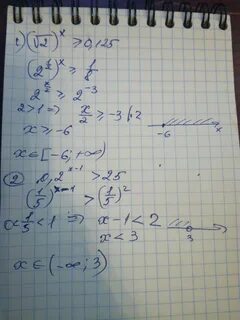 c) (√2)^x ≥ 0,125
(2^(1/2))^x ≥ 1/8
2^(x/2) ≥ 2^(-3)
2>1 ⇒ x/2 ≥ -3 |·2
x ≥ -6
-6 x
x∈[-6; +∞)
② 0,2^(x-1) > 25
(1/5)^(x-1) > (1/5)^2
<1/5<1 ⇒ x-1<2
x<3
3
x∈(-∞; 3)